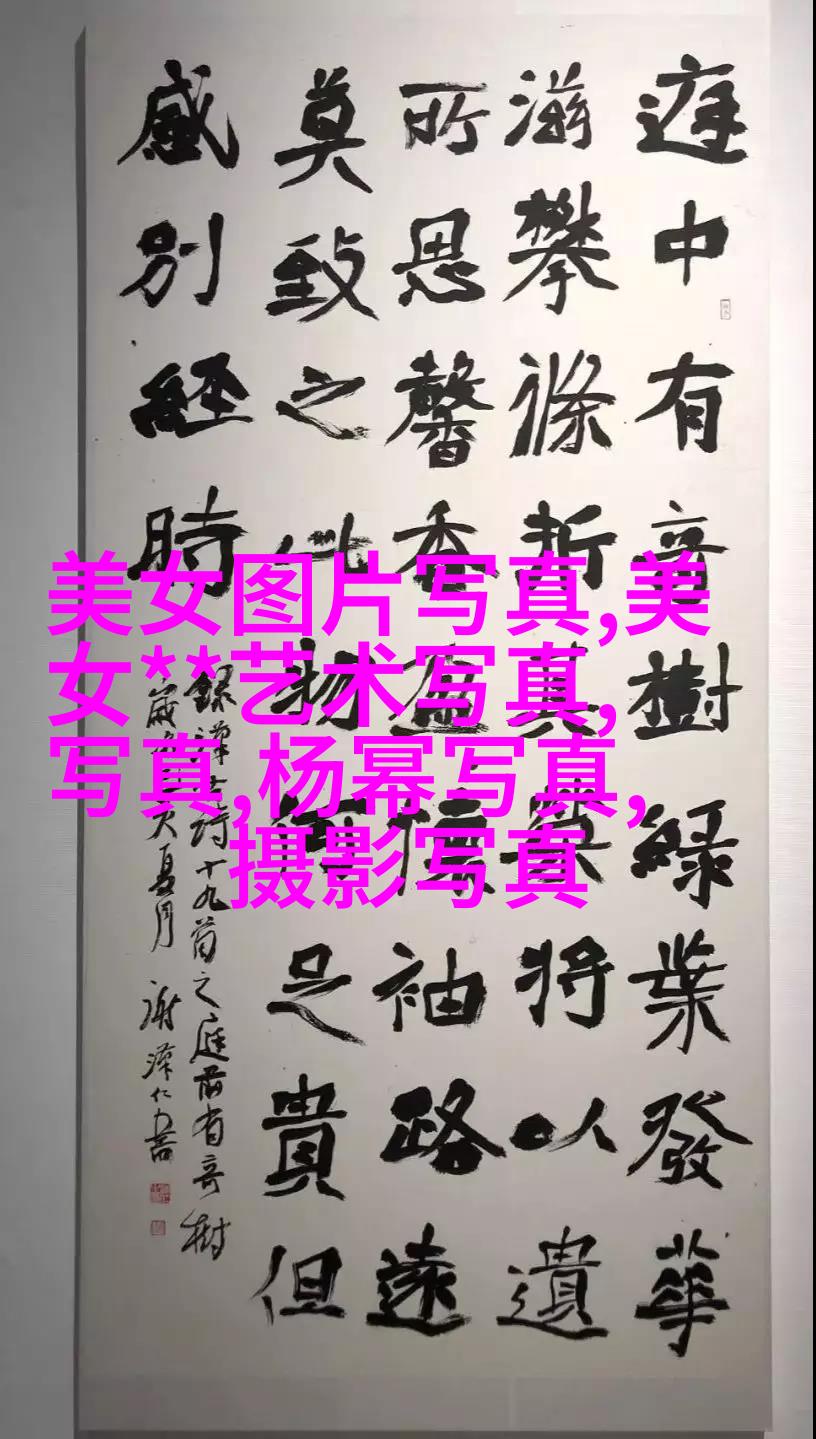 庭中有奇樹緑葉發華
滋攀條折其榮將以遺
所思馨香盈懷袖路遠
莫致之此物何足貴但
感別經時
録漢古詩十九首之庭前有奇樹
歲亥夏月 謝澤仁書
美女图片写真,美
女**艺术写真,
写真,杨幂写真,
摄影写真